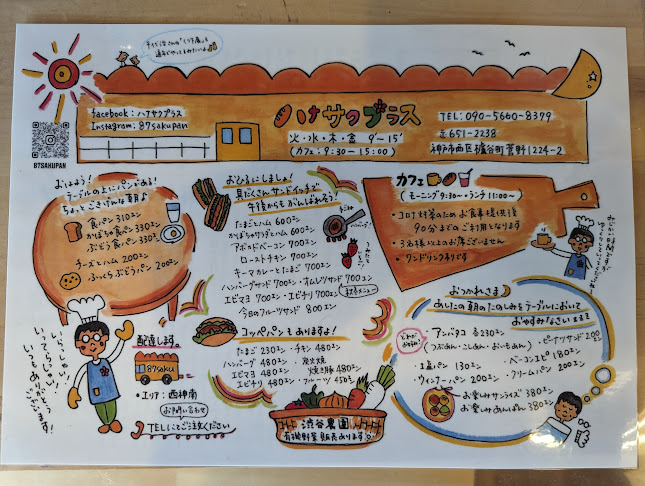 facebook：ハケサクプラス
Instagram：87sakupan
87SAKUPAN
ハケサクプラス
火・水・木・金 9〜15
(カフェ：9:30〜15:00)
TEL：090-5660-8379
〒651-2238
神戸市西区櫨谷町菅野1224-2
おはよう！
テーブルの上にパンがある！
ちょっとごきげんな朝♪
食パン 310エン
かぼちゃ食パン 330エン
ぶどう食パン 330エン
チーズとハム 200エン
ふっくらぶどうパン 200エン
おひるにしましょ！
具だくさんサンドイッチで
午後からもがんばれそう！
たまごとハム 600エン
かぼちゃサラダとハム 600エン
アボカドベーコン 700エン
ローストチキン 700エン
キーマカレーとたまご 700エン
ハンバーグサンド 700エン・オムレツサンド 700エン
エビマヨ 700エン・エビチリ 700エン
今日のフルーツサンド 800エン
コッペパンもありますよ！
たまご 230エン・チキン 480エン
ハンバーグ 480エン・炭火焼
焼き豚 480エン
エビマヨ 480エン
エビチリ 480エン・フルーツ 450エン
カフェ
(モーニング 9:30〜・ランチ 11:00〜)
・コロナ対策のためお食事提供後
90分までのご利用となります
・3名様以上のお席ございません
・ワンドリンク制です
おつかれさま
あしたの朝のたのしみをテーブルにおいて
おやすみなさいませ
・アンバタコ 各230エン
(つぶあん・こしあん・おいもあん)
・ピーナツサンド 200エン
・塩パン 130エン
・ベーコンエピ 180エン
・ウィンナーパン 200エン
・クリームパン 200エン
お楽しみサンライズ 380エン
お楽しみあんぱん 380エン
配達します。
87saku
・エリア：西神南
お問い合わせ
TELにてご注文ください
いらっしゃい
いってらっしゃい
いつもありがとう
ございます！
渋谷農園
有機野菜 販売あります